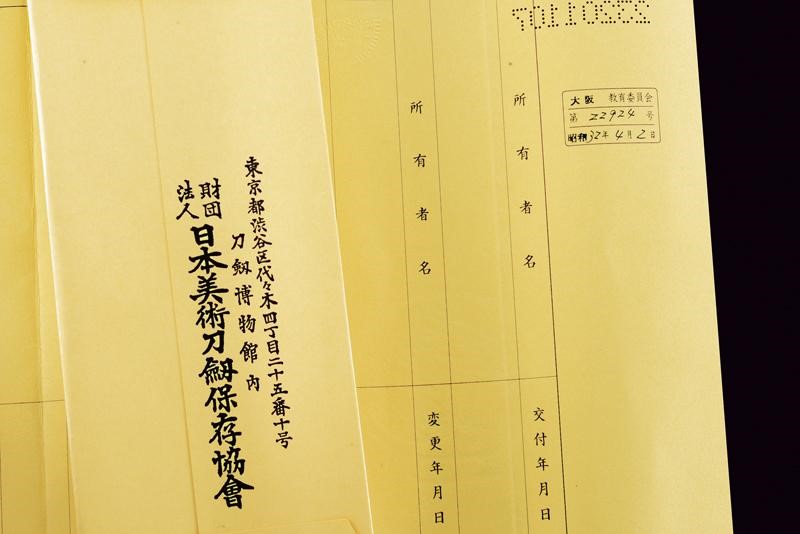 大阪 教育委員会
第 22924 号
昭和32年4月2日
所有者名
交付年月日
所有者名
変更年月日
東京都渋谷区代々木四丁目二十五番十号
刀劔博物館内
財団法人
日本美術刀劔保存協會